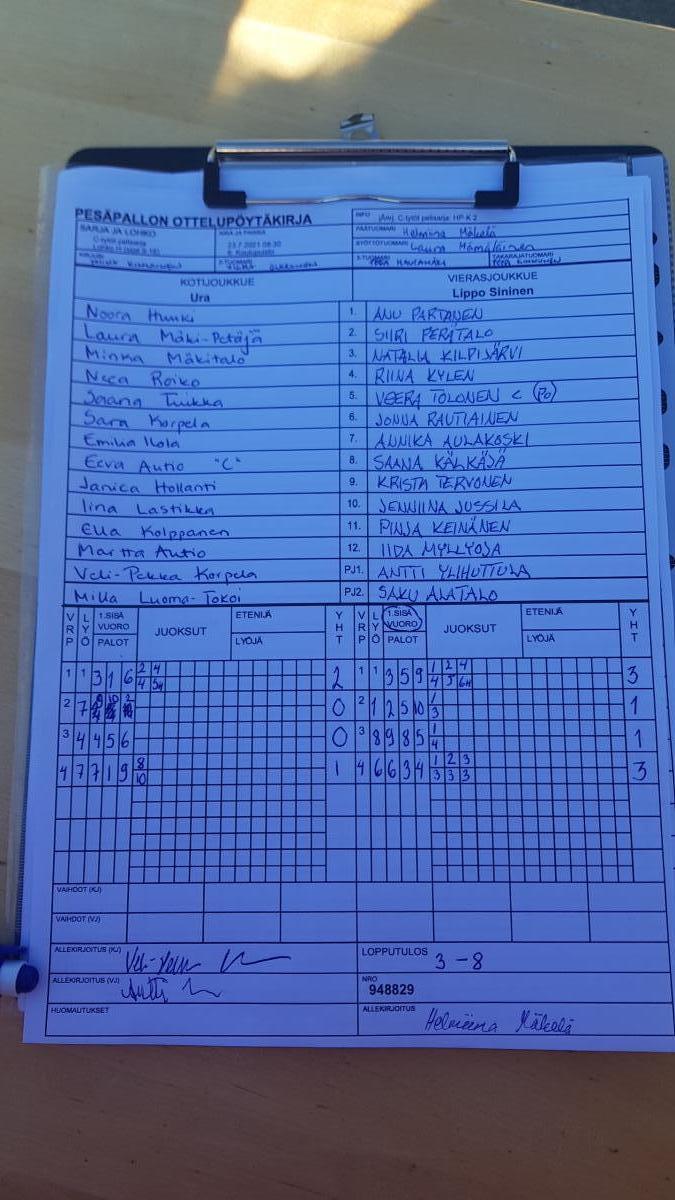 PESÄPALLON OTTELUPÖYTÄKIRJA
INFO (Äw). C-tytöt pelisarja: HP-K 2
SARJA JA LOHKO
C-tytöt pelisarja
23.7.2021 08:30
PÄÄTUOMARI Helmiina Mäkelä
SYÖTTÖTUOMARI Laura Hämäläinen
2-TUOMARI
3-TUOMARI
TAKARAJATUOMARI
KOTIJOUKKUE
Ura
VIERASJOUKKUE
Lippo Sininen
Noora Hunki 1. ANU PARTANEN
Laura Mäki-Petäjä 2. SIIRI PERÄTALO
Minka Mäkitalo 3. NATALIA KILPIJÄRVI
Neea Roiko 4. RIINA KYLEN
Jaana Tuikka 5. VEERA TOLONEN C (PO)
Sara Korpela 6. JONNA RAUTIAINEN
Emilia Ilola 7. ANNIKA AULAKOSKI
Eeva Autio "C" 8. SAANA KÄLKÄJÄ
Janica Hollanti 9. KRISTA TERVONEN
Iina Lastikka 10. JENNIINA JUSSILA
Ella Kolppanen 11. PINJA KEINÄNEN
Martta Autio 12. IIDA MYLLYOJA
Veli-Pekka Korpela PJ1. ANTTI YLIHUTTULA
Milla Luoma-Tokoi PJ2. SAKU ALATALO
VRP LYÖ 1.SISÄ VUORO PALOT JUOKSUT ETENIJÄ LYÖJÄ YHT VRP LYÖ 1.SISÄ VUORO PALOT JUOKSUT ETENIJÄ LYÖJÄ YHT
1 1 3 1 6 2 4 2 1 1 3 5 9 1 2 4 3
4 4 5 6
2 7 0 2 1 2 5 10 1 1
3
3 4 4 5 6 0 3 8 9 8 5 1 1
4
4 7 7 1 9 8 1 4 6 6 3 4 1 2 3 3
10 3 3 3
VAIHDOT (KJ)
VAIHDOT (VJ)
ALLEKIRJOITUS (KJ)
LOPPUTULOS 3-8
ALLEKIRJOITUS (VJ) Antti
NRO
948829
HUOMAUTUKSET
ALLEKIRJOITUS
Helmiina Mäkelä